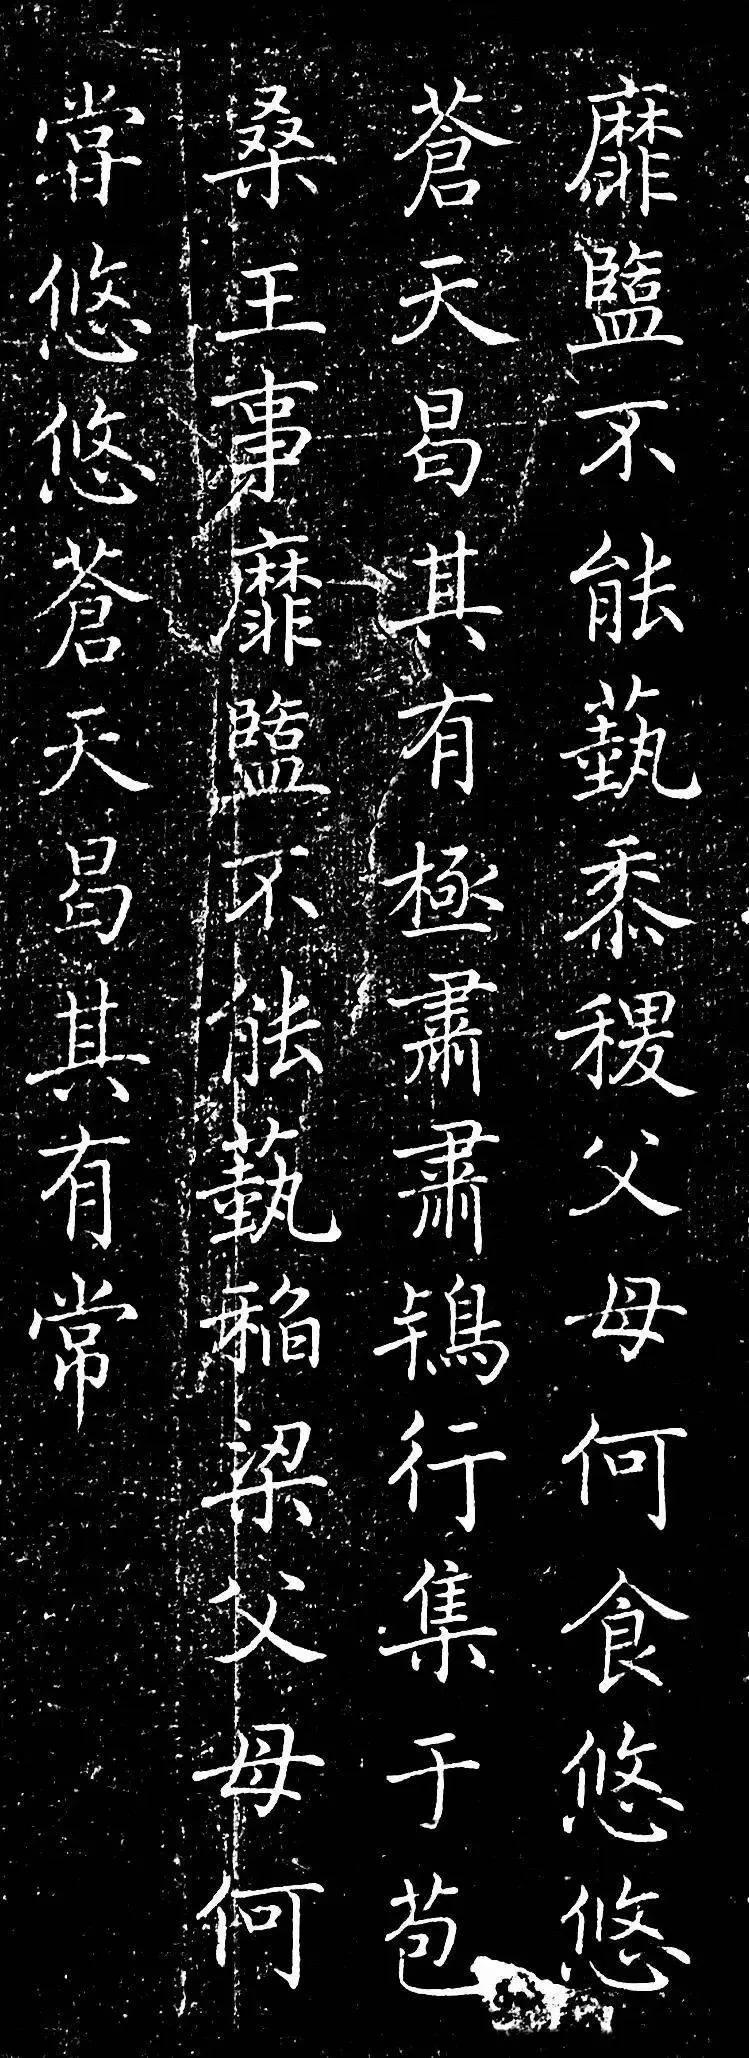 靡盬不能蓺黍稷父母何食悠悠
蒼天曷其有極肅肅鴇行集于苞
桑王事靡盬不能蓺稻梁父母何
嘗悠悠蒼天曷其有常